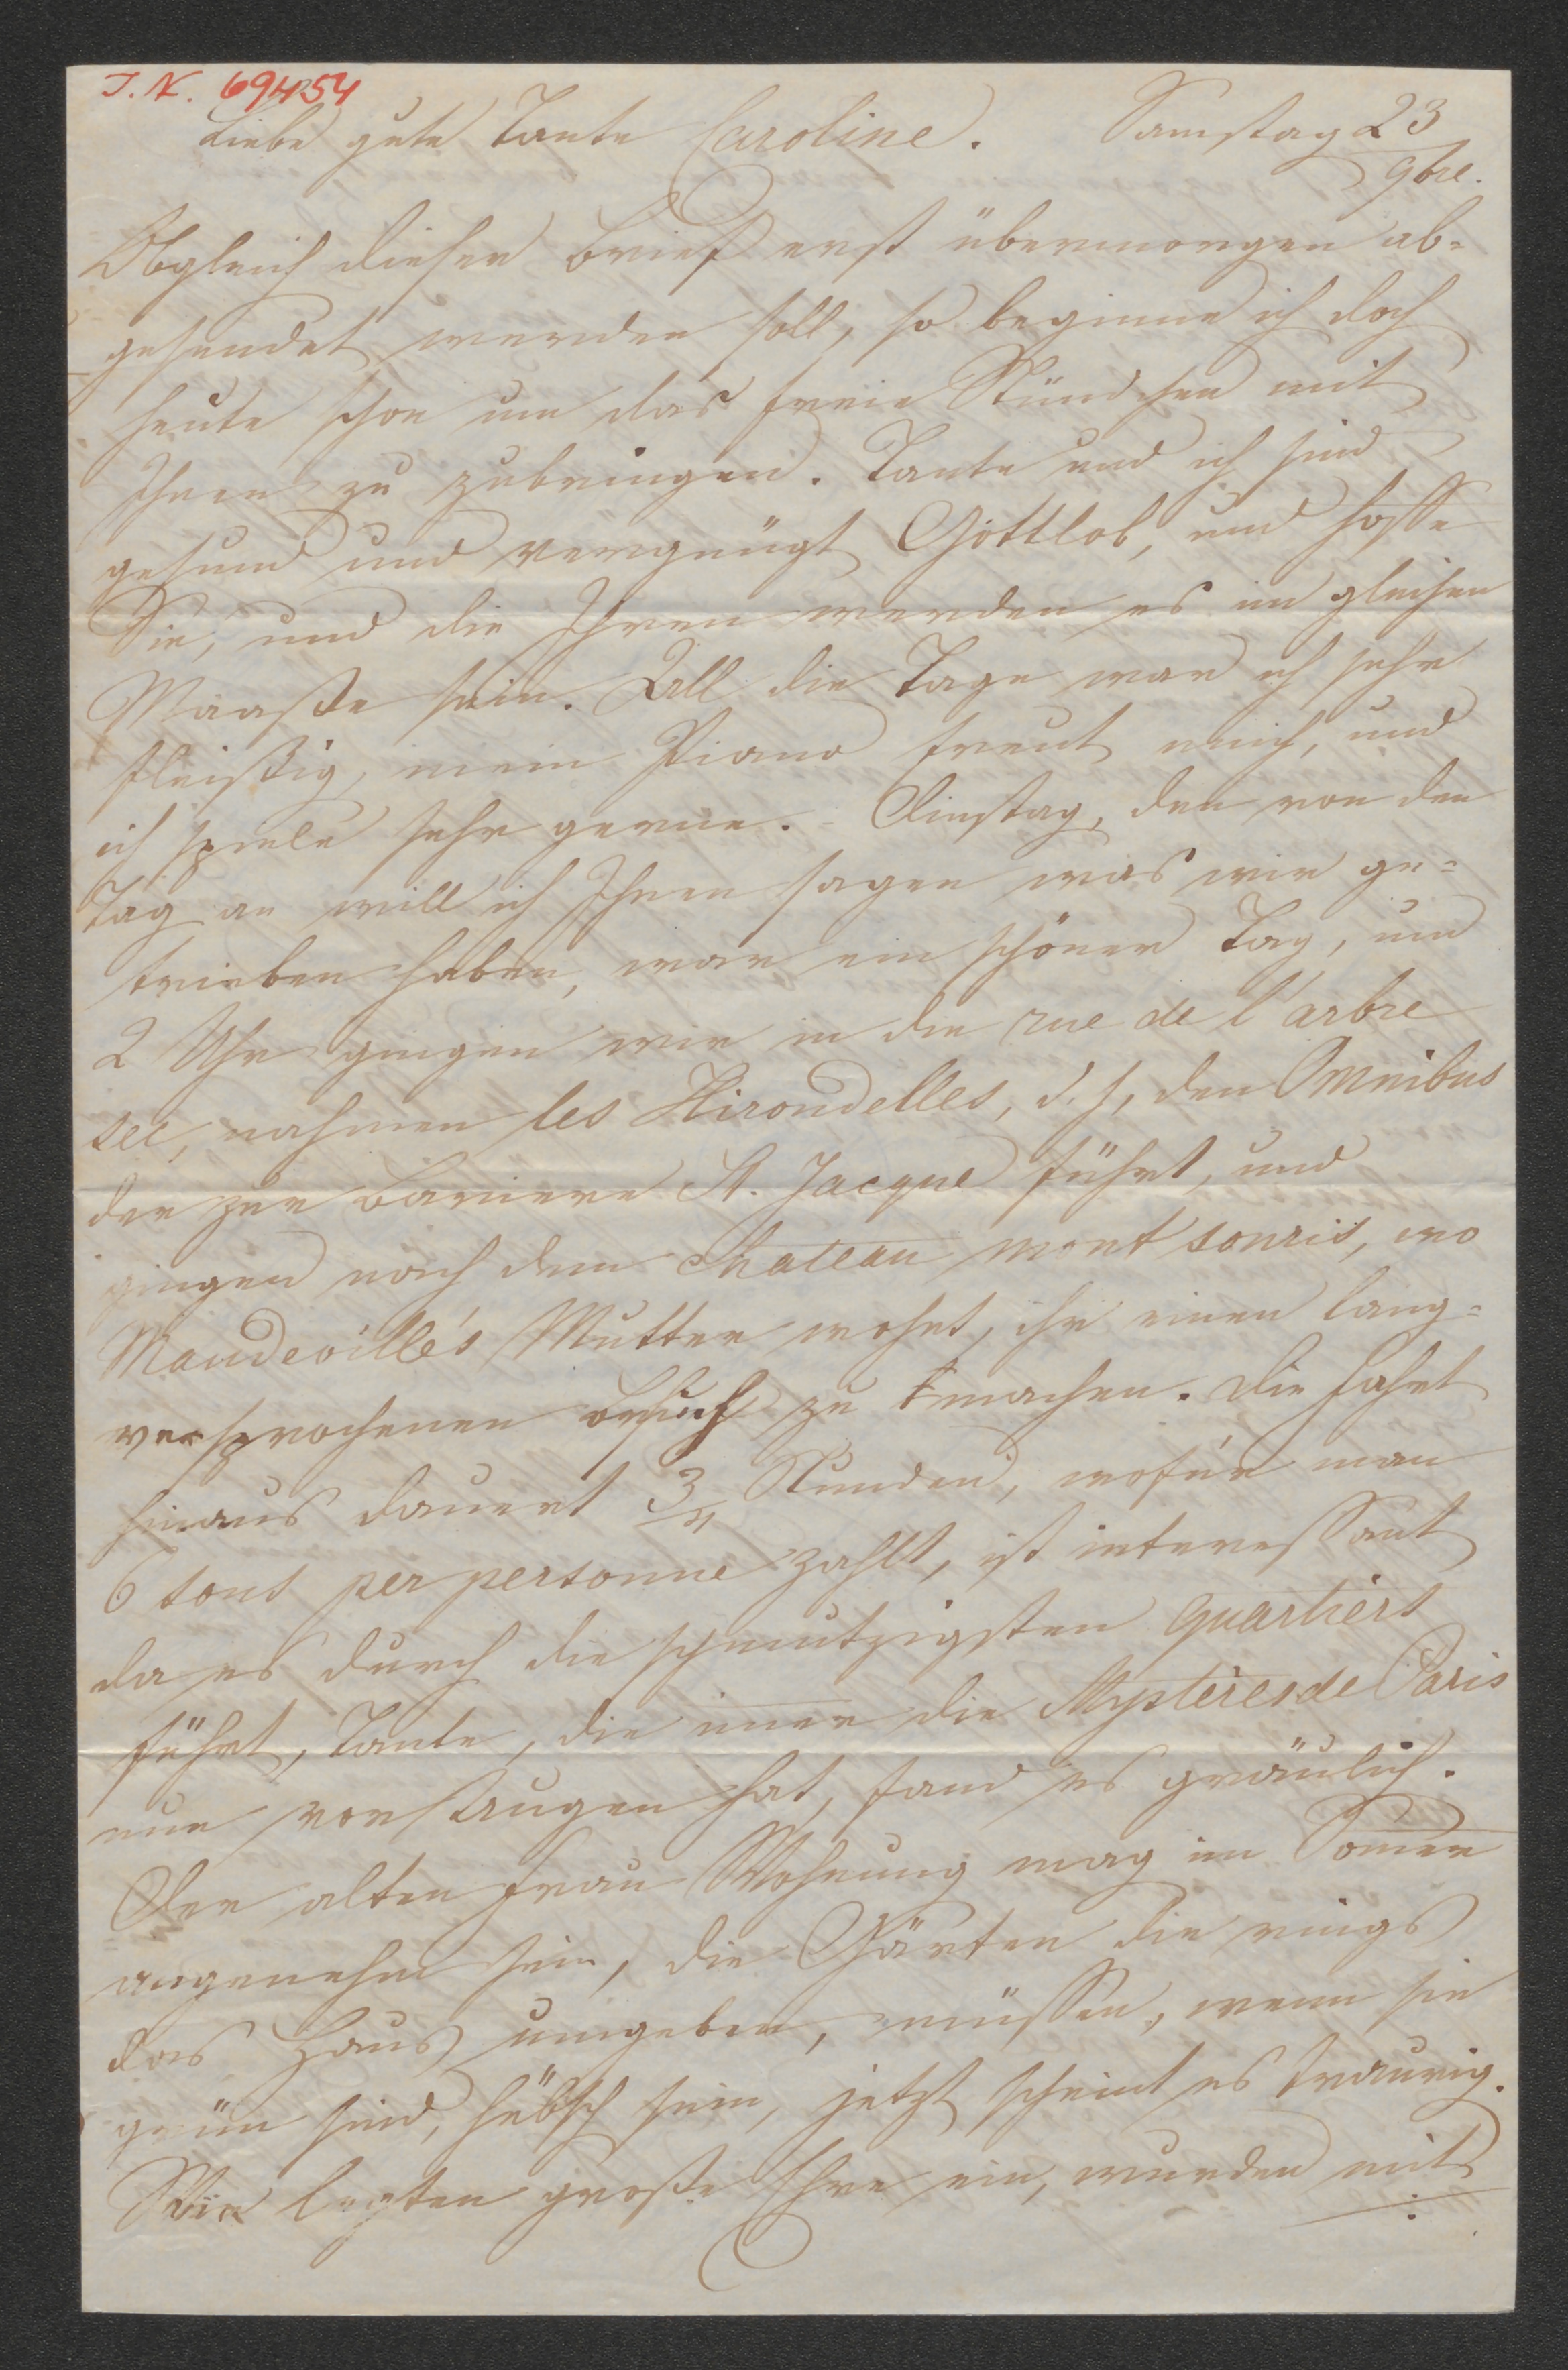 I. N. 69454
Liebe gute Tante Caroline. Samstag 23
9bre.
Obgleich dieser Brief erst übermorgen ab-
gesendet werden soll, so beginne ich doch
heute schon um das freie Stündchen mit
Ihnen zu zubringen. Tante und ich sind
gesund und vergnügt Gottlob, und hoffe
Sie, und die Ihren werden es im gleichen
Maaße sein. All die Tage war ich sehr
fleißig, mein Piano freut mich, und
ich spiele sehr gerne. - Dinstag, den von den
Tag an will ich Ihnen sagen was wir ge-
trieben haben, war ein schöner Tag, um
2 Uhr gingen wir in die rue de l'arbre
sec, nahmen les Hirondelles, d. h, den Omnibus
der zur Barriere St. Jacque führt, und
gingen nach dem Chateau mont souris, wo
Mandeville's Mutter wohnt, ihr einen lang-
versprochenen Besuch zu machen. Die Fahrt
hinaus dauert 3/4 Stunden, wofür man
6 sous per personne zahlt, ist interessant
da es durch die schmutzigsten quartiers
führt, Tante, die imer die Mystères de Paris
nun vor Augen hat, fand es gräulich.
Der alten Frau Wohnung mag im Somer
angenehm sein, die Gärten die rings
das Haus umgeben, müssen, wenn sie
grün sind, hübsch sein, jetzt scheint es traurig.
Wir legten große Ehre ein, wurden mit